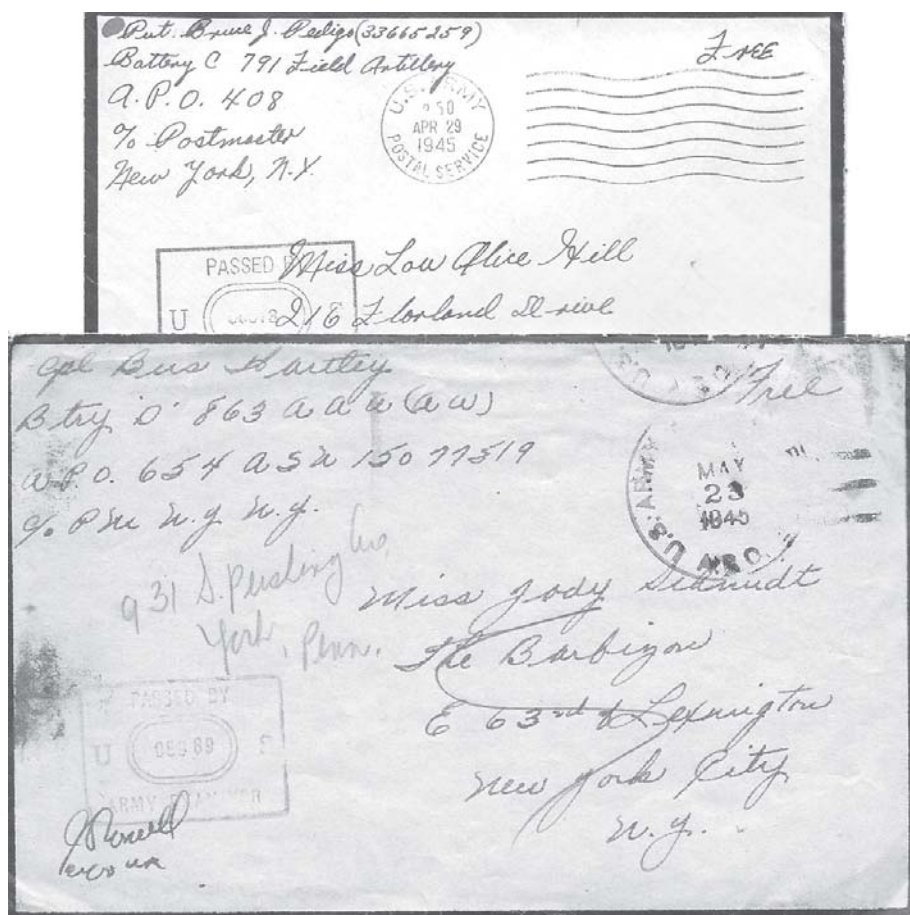 Pvt. Bruce J. Pedigo (33665259)
Battery C 791 Field Artillery
A.P.O. 408
c/o Postmaster
New York, N.Y.
Free
U.S. ARMY
50
APR 29
1945
POSTAL SERVICE
PASSED BY
U S
Miss Lou Alice Hill
218 Florland Drive
Cpl Bus Hartley
Btry "D" 863 A A A (A W)
A.P.O. 654 A S N 150 77519
c/o P M N.Y. N.Y.
Free
U.S. ARMY
MAY
23
1945
A.P.O.
931 S. Pershing Ave,
York, Penn.
Miss Jody Schmidt
The Barbizon
E 63rd & Lexington
New York City
N.Y.
PASSED BY
U S
ARMY EXAMINER